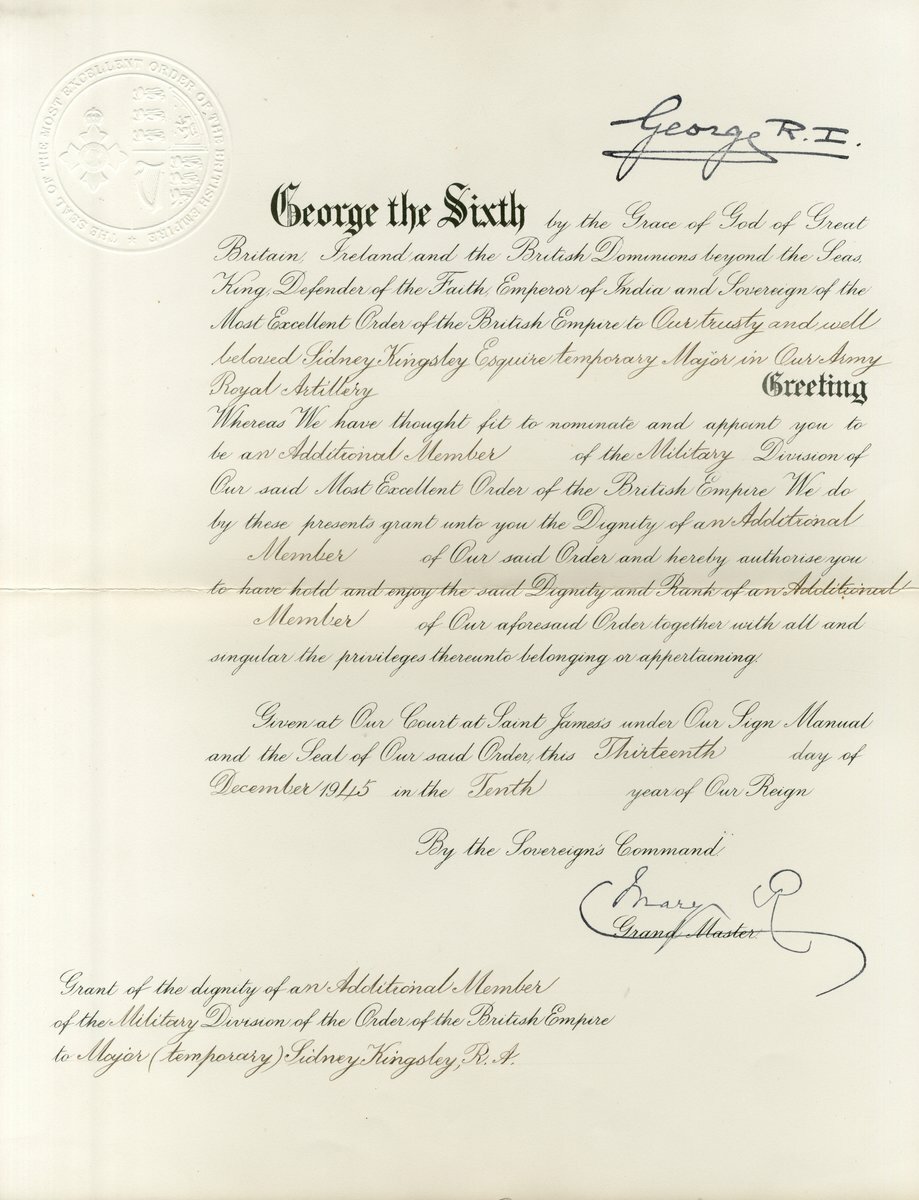 THE SEAL OF THE MOST EXCELLENT ORDER OF THE BRITISH EMPIRE
George R.I.
George the Sixth by the Grace of God of Great
Britain, Ireland and the British Dominions beyond the Seas,
King, Defender of the Faith, Emperor of India and Sovereign of the
Most Excellent Order of the British Empire to Our trusty and well
beloved Sidney Kingsley Esquire temporary Major in Our Army
Royal Artillery Greeting
Whereas We have thought fit to nominate and appoint you to
be an Additional Member of the Military Division of
Our said Most Excellent Order of the British Empire We do
by these presents grant unto you the Dignity of an Additional
Member of Our said Order and hereby authorise you
to have hold and enjoy the said Dignity and Rank of an Additional
Member of Our aforesaid Order together with all and
singular the privileges thereunto belonging or appertaining.
Given at Our Court at Saint James's under Our Sign Manual
and the Seal of Our said Order, this Thirteenth day of
December 1945 in the Tenth year of Our Reign
By the Sovereign's Command.
Mary R
Grand Master.
Grant of the dignity of an Additional Member
of the Military Division of the Order of the British Empire
to Major (temporary) Sidney Kingsley, R.A.